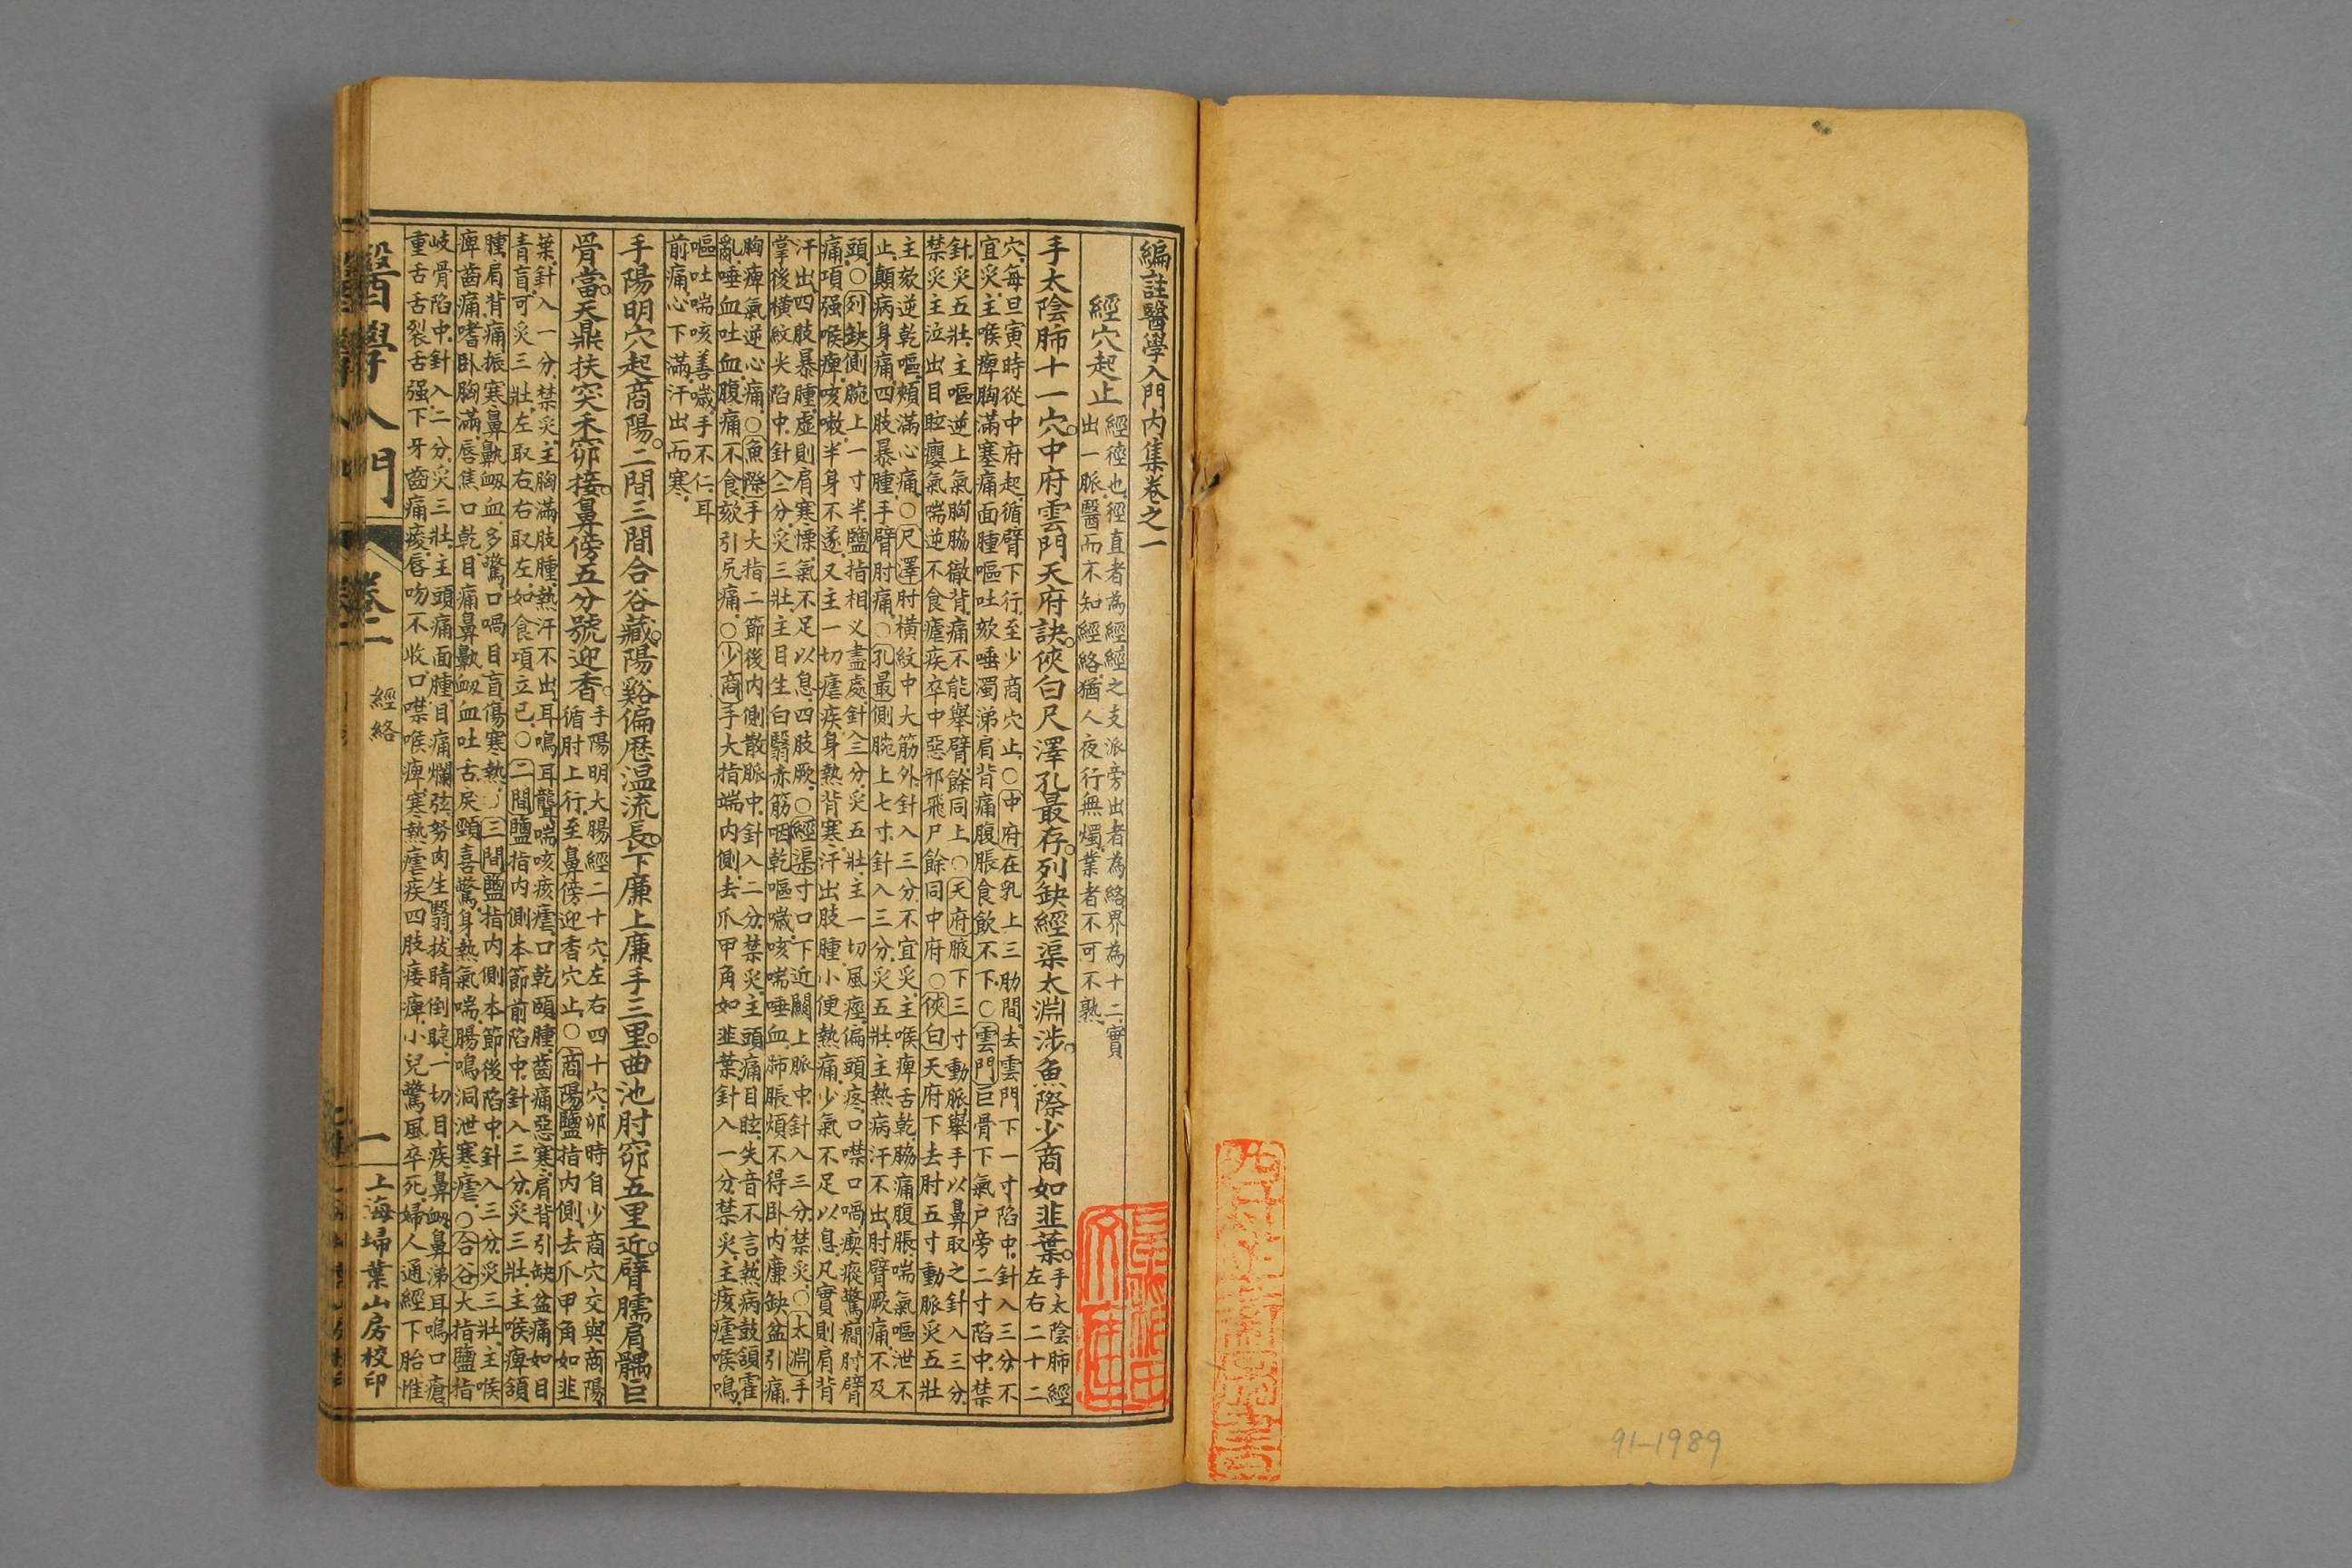 編註醫學入門內集卷之一
經穴起止
經徑也徑直者為經經之支派旁出者為絡界為十二實
出一脈醫而不知經絡猶人夜行無燭業者不可不熟
手太陰肺十一穴中府雲門天府訣俠白尺澤孔最存列缺經渠太淵涉魚際少商如韭葉
手太陰肺經
左右二十二
穴每旦寅時從中府起循臂下行至少商穴止○中府在乳上三肋間去雲門下一寸陷中針入三分不
宜灸主喉痺胸滿塞痛面腫嘔吐欬唾濁涕肩背痛腹脹食飲不下○雲門巨骨下氣戶旁二寸陷中禁
針灸五壯主嘔逆上氣胸脇徹背痛不能舉臂餘同上○天府腋下三寸動脈舉手以鼻取之針入三分
禁灸主泣出目䀮癭氣喘逆不食瘧疾卒中惡邪飛尸餘同中府○俠白天府下去肘五寸動脈灸五壯
主欬逆乾嘔頰滿心痛○尺澤肘橫紋中大筋外針入三分不宜灸主喉痺舌乾脇痛腹脹喘氣嘔泄不
止顛病身痛四肢暴腫手臂肘痛○孔最側腕上七寸針入三分灸五壯主熱病汗不出肘臂厥痛不及
頭○列缺側腕上一寸半鹽指相义盡處針入三分灸五壯主一切風瘂偏頭疼口噤口喎瘈瘲驚癎肘臂
痛項强喉痺咳嗽半身不遂又主一切瘧疾身熱背寒汗出肢腫小便熱痛少氣不足以息凡實則肩背
汗出四肢暴腫虛則肩寒慄氣不足以息四肢厥○經渠寸口下近關上脈中針入三分禁灸○太淵手
掌後橫紋尖陷中針入二分灸三壯主目生白翳赤筋咽乾嘔噦咳喘唾血肺脹煩不得卧內廉缺盆引痛
胸痺氣逆心痛○魚際手大指二節後內側散脈中針入二分禁灸主頭痛目眩失音不言熱病鼓頷霍
亂唾血吐血腹痛不食欬引尻痛○少商手大指端內側去爪甲角如韭葉針入一分禁灸主痎瘧喉鳴
嘔吐喘咳善噦手不仁耳
前痛心下滿汗出而寒
手陽明穴起商陽二間三間合谷藏陽谿偏歷温流長下廉上廉手三里曲池肘窌五里近臂臑肩髃巨
骨當天鼎扶突禾窌接鼻傍五分號迎香
手陽明大腸經二十穴左右四十穴卯時自少商穴交與商陽
循肘上行至鼻傍迎香穴止○商陽鹽指內側去爪甲角如韭
葉針入一分禁灸主胸滿肢腫熱汗不出耳鳴耳聾喘咳痎瘧口乾頤腫齒痛惡寒肩背引缺盆痛如目
青盲可灸三壯左取右右取左如食項立已○二間鹽指內側本節前陷中針入三分灸三壯主喉痺頷
腫肩背痛振寒鼻鼽衂血多驚口喎目盲傷寒熱○三間鹽指內側本節後陷中針入三分灸三壯主喉
痺齒痛嗜卧胸滿唇焦口乾目痛鼻鼽衂血吐舌戾頸喜驚身熱氣喘腸鳴洞泄寒瘧○合谷大指鹽指
岐骨陷中針入二分灸三壯主頭痛面腫目痛爛弦努肉生翳拔睛倒睫一切目疾鼻衂鼻涕耳鳴口瘡
重舌舌裂舌强下牙齒痛痠唇吻不收口噤喉痺寒熱瘧疾四肢痿痺小兒驚風卒死婦人通經下胎惟
醫學入門
卷二
經絡
一
上海埽葉山房校印
91-1989